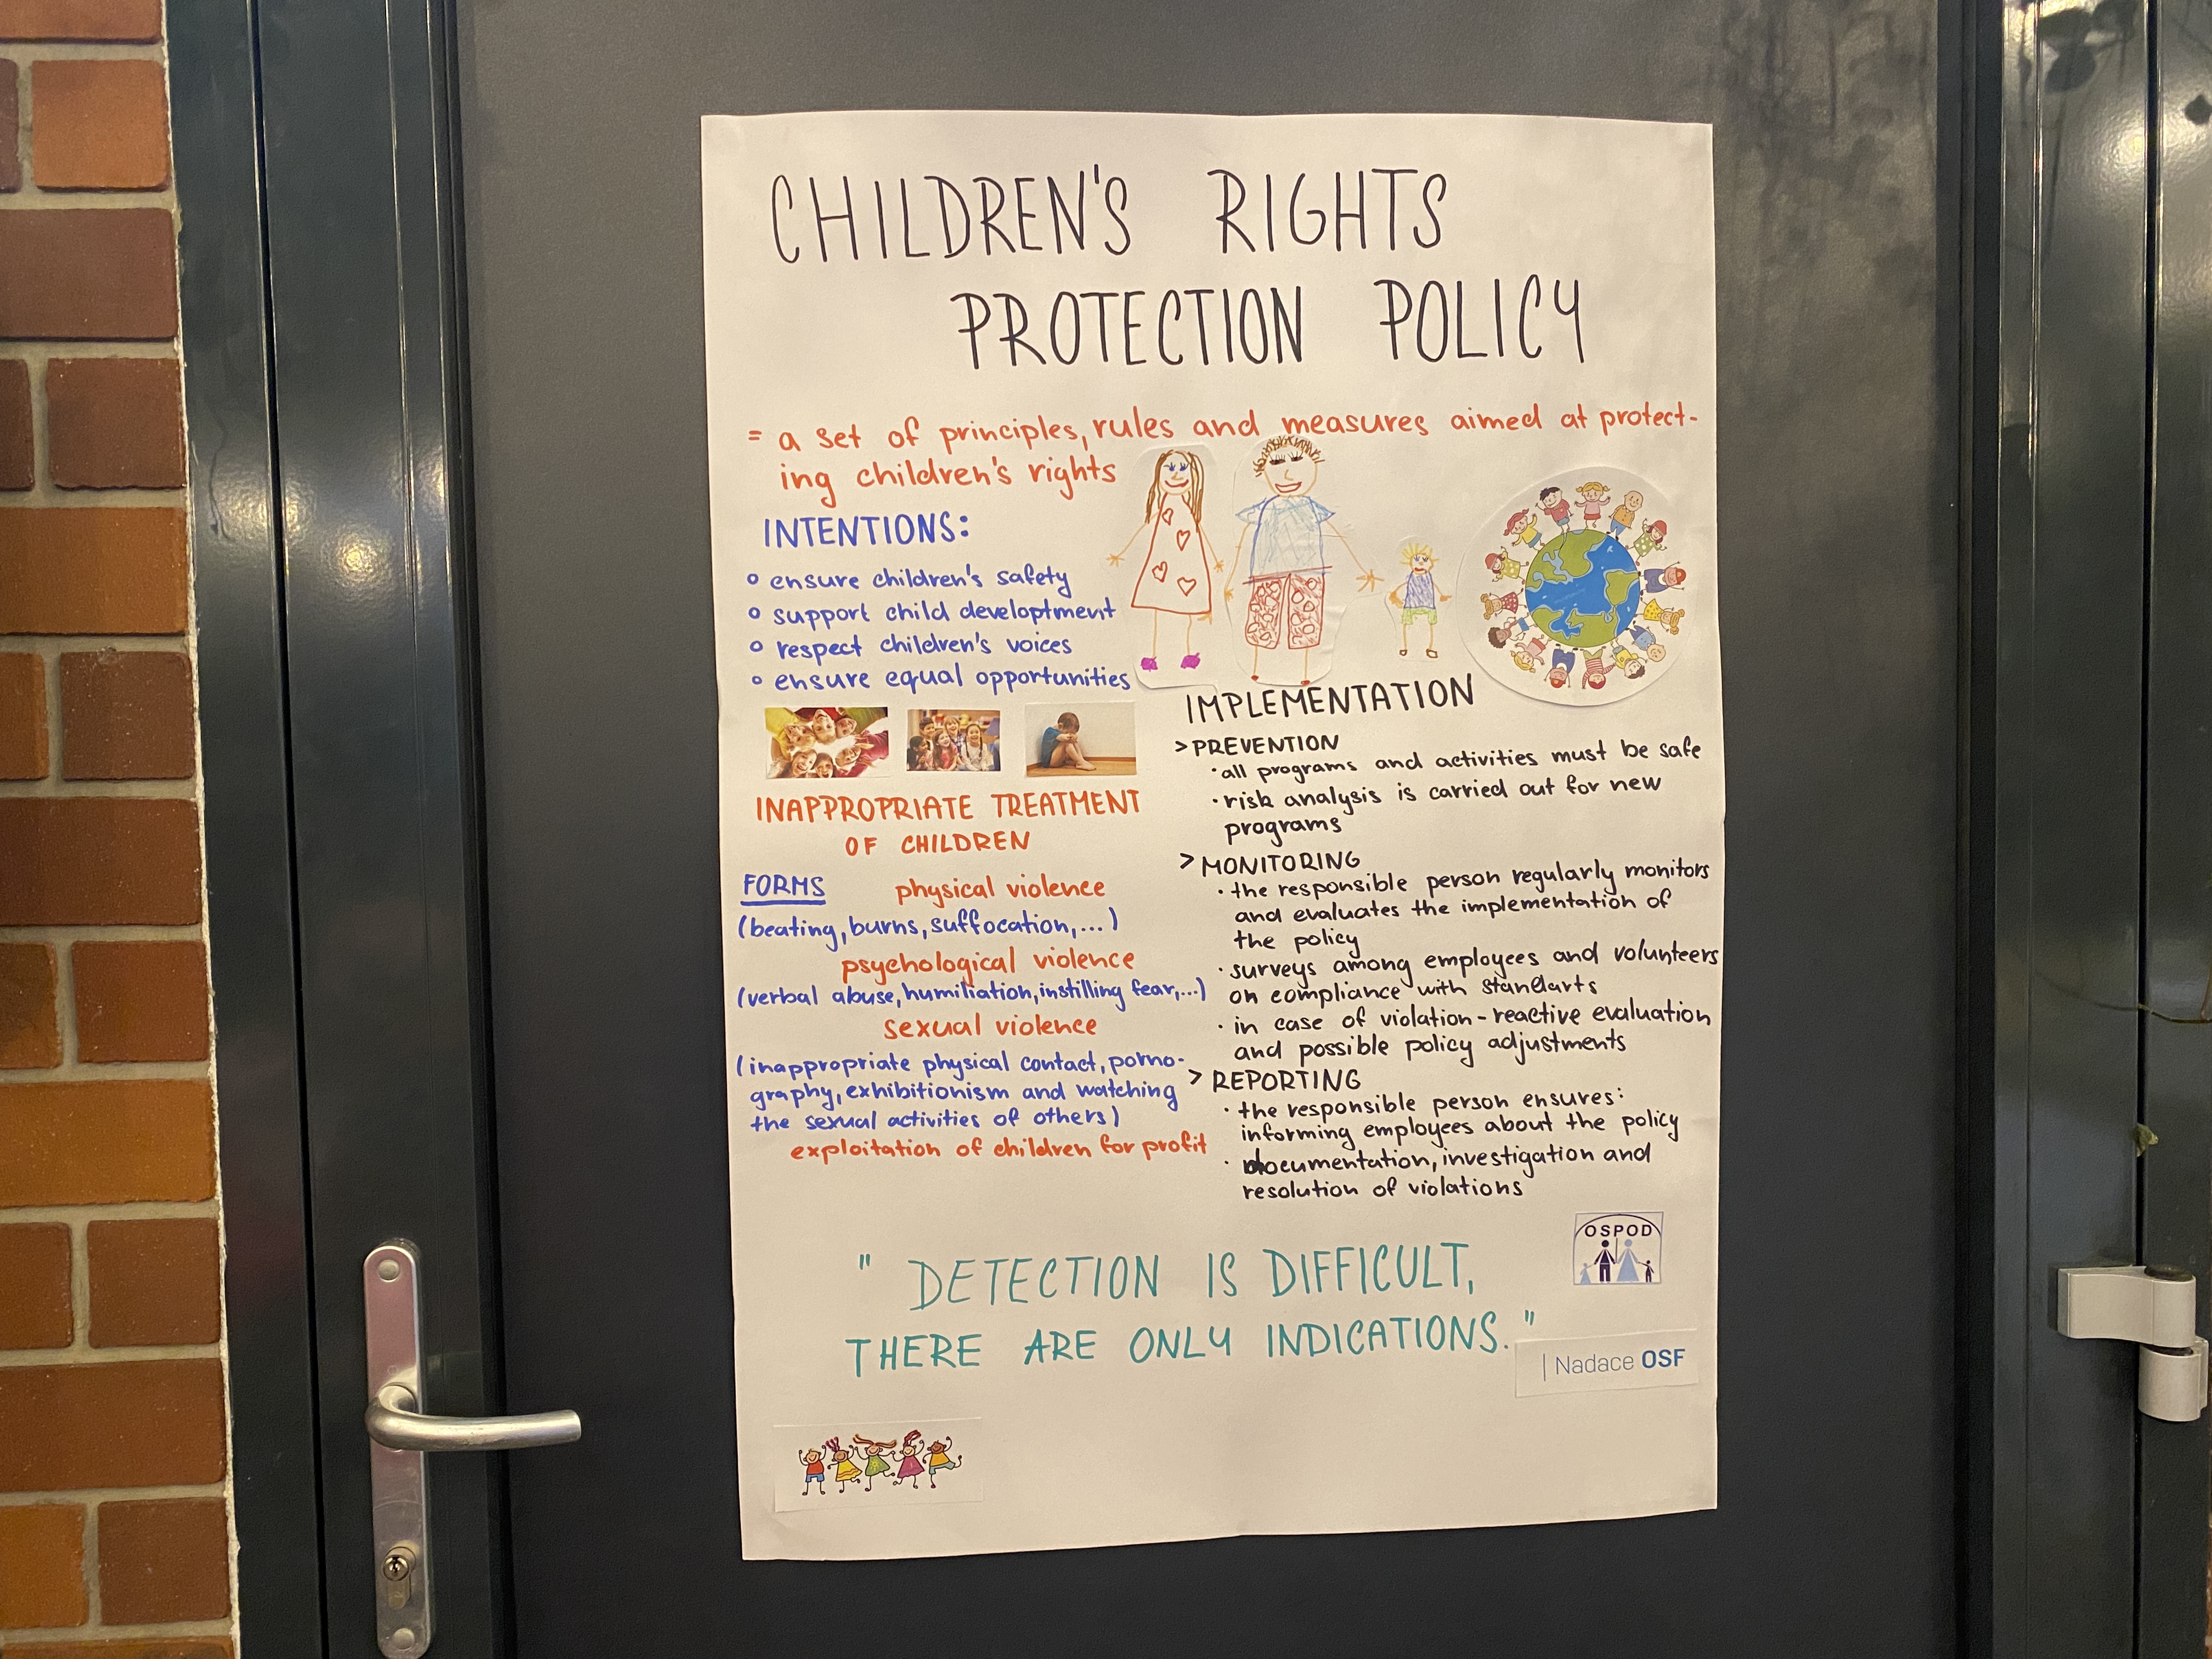 CHILDREN'S RIGHTS
PROTECTION POLICY
= a set of principles, rules and measures aimed at protect-
ing children's rights
INTENTIONS:
o ensure children's safety
o support child developtment
o respect children's voices
o ensure equal opportunities
INAPPROPRIATE TREATMENT
OF CHILDREN
FORMS physical violence
(beating, burns, suffocation, ...)
psychological violence
(verbal abuse, humiliation, instilling fear, ...)
sexual violence
(inappropriate physical contact, porno-
graphy, exhibitionism and watching
the sexual activities of others)
exploitation of children for profit
IMPLEMENTATION
> PREVENTION
· all programs and activities must be safe
· risk analysis is carried out for new
programs
> MONITORING
· the responsible person regularly monitors
and evaluates the implementation of
the policy
· surveys among employees and volunteers
on compliance with standarts
· in case of violation - reactive evaluation
and possible policy adjustments
> REPORTING
· the responsible person ensures:
informing employees about the policy
· documentation, investigation and
resolution of violations
" DETECTION IS DIFFICULT,
THERE ARE ONLY INDICATIONS. "
OSPOD
| Nadace OSF